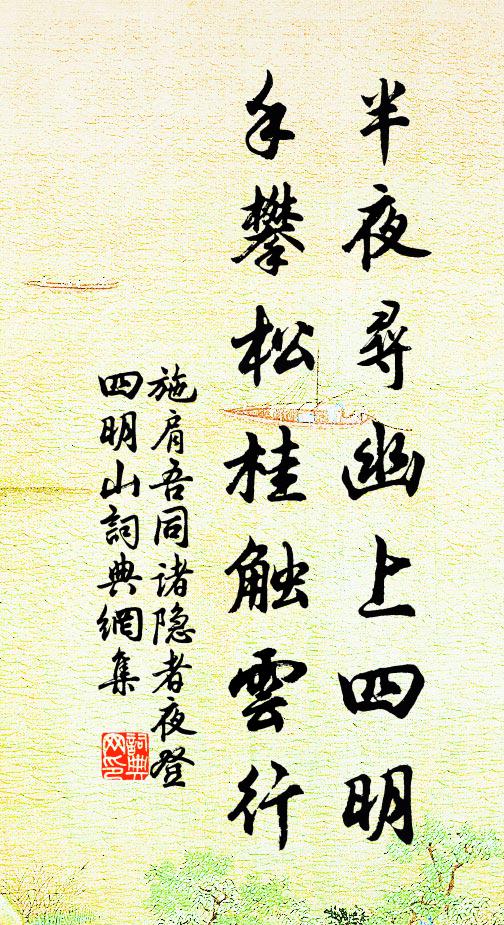 半夜尋幽上四明
手攀松桂触雲行
施肩吾同诸隐者夜登
四明山詞典網集
詞典网印